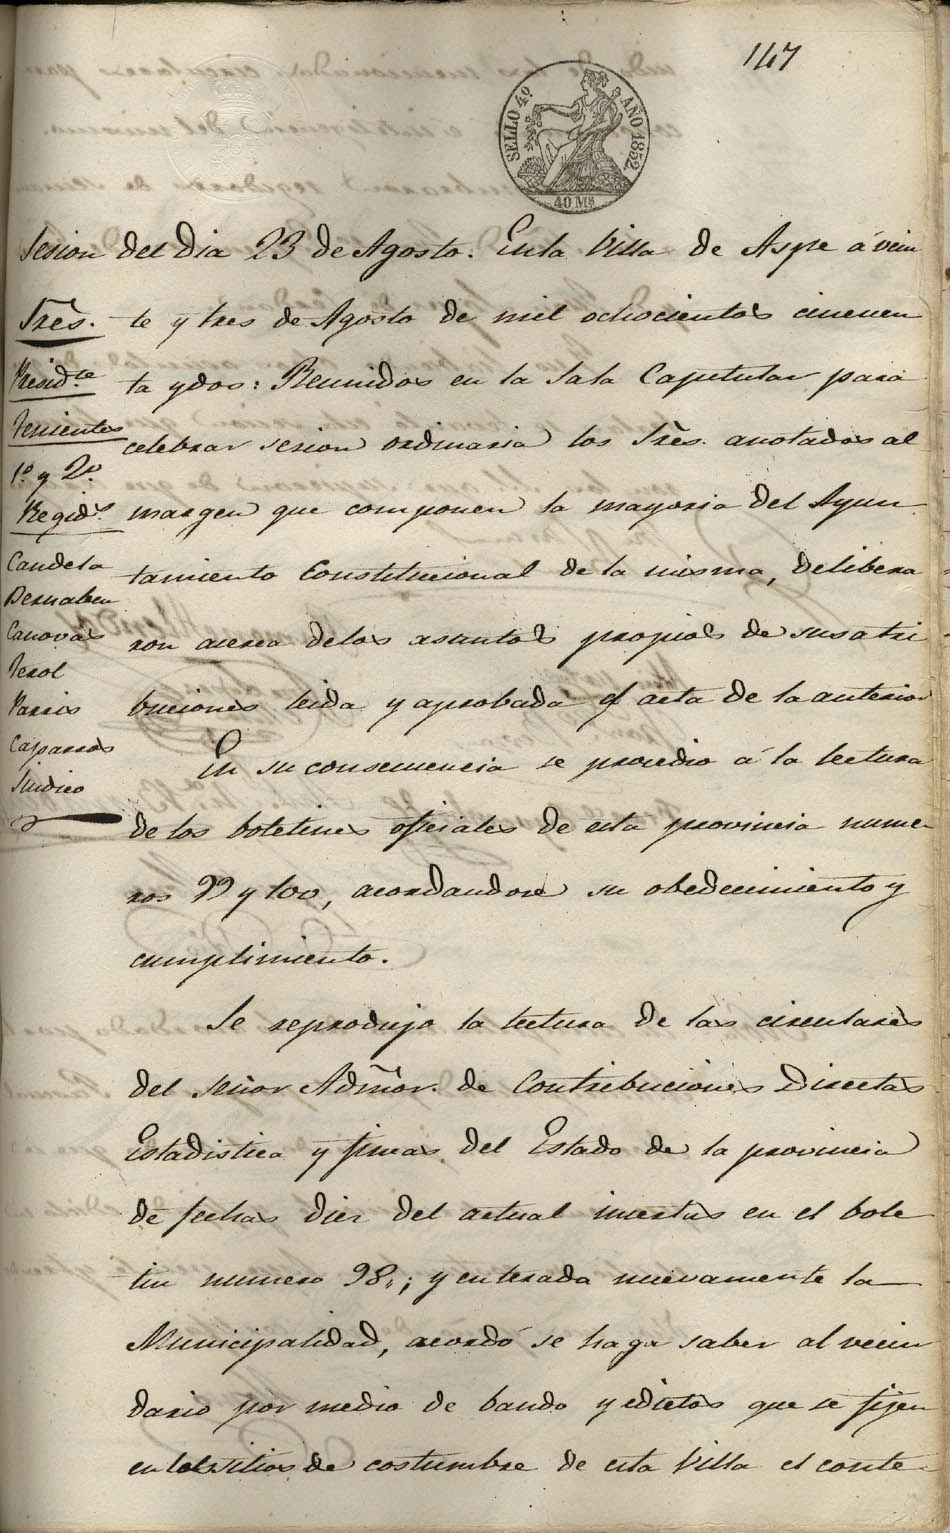 147
SELLO 4º AÑO 1852.
40 Ms
Sesion del dia 23 de Agosto. En la Villa de Aspe á vein
te y tres de Agosto de mil ochocientos cincuen
ta y dos: Reunidos en la Sala Capitular para
celebrar sesion ordinaria los Sres. anotados al
margen que componen la mayoria del Ayun
tamiento Constitucional de la misma, delibera
ron acerca de los asuntos propios de sus atri
buciones leida y aprobada el acta de la anterior
Sres.
Presidte
Tenientes
1º y 2º
Regids
Candela
Bernabeu
Canovas
Terol
Parris
Caparros
Sindico
En su consecuencia se procedio á la lectura
de los boletines oficiales de esta provincia nume
ros 99 y 100, acordandose su obedecimiento y
cumplimiento.
Se reprodujo la lectura de las circulares
del Señor Admor. de Contribuciones Directas
Estadistica y fincas del Estado de la provincia
de fechas diez del actual insertas en el bole
tin numero 98,; y enterada nuevamente la
Municipalidad, acordó se haga saber al vecin
dario por medio de bando y edictos que se fijen
en los sitios de costumbre de esta Villa el conte